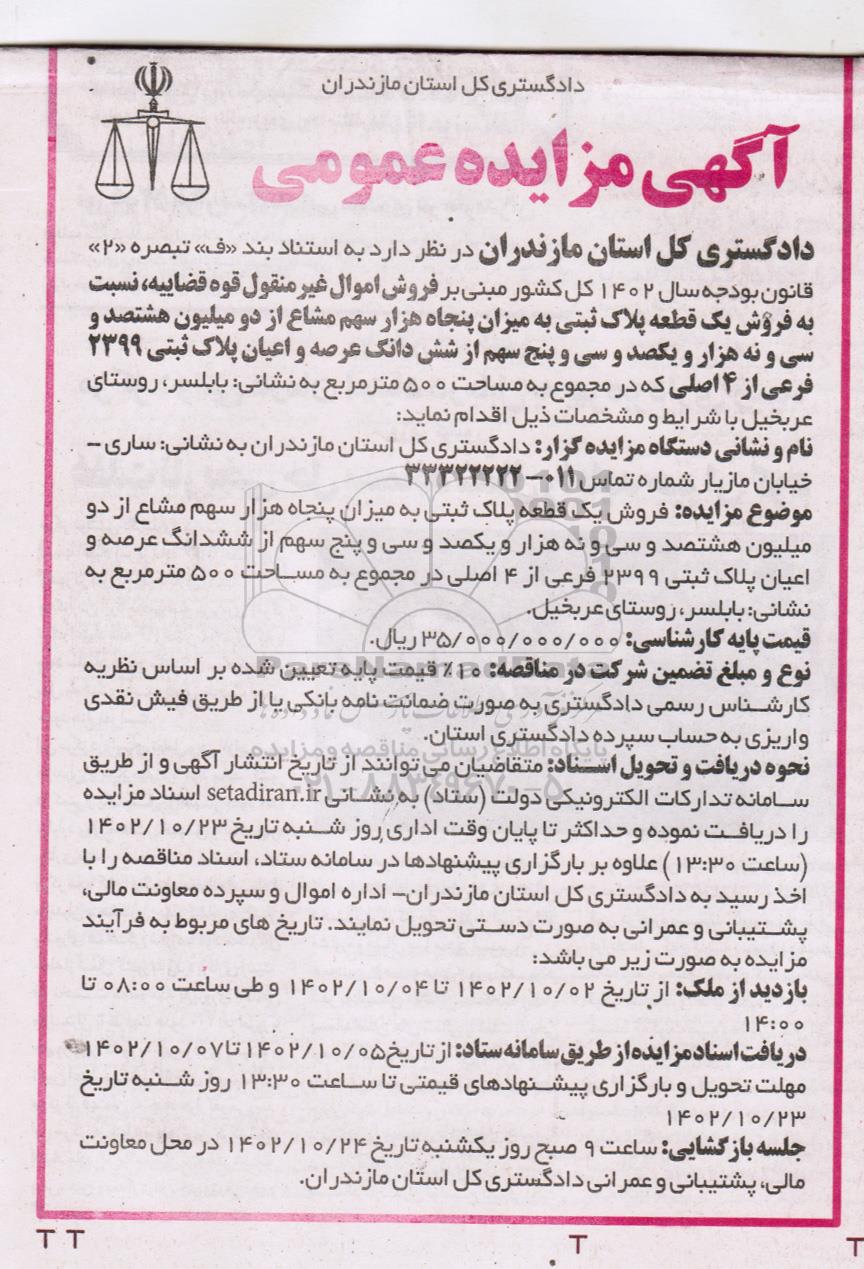 دادگستری کل استان مازندران
آگهی مزایده عمومی
دادگستری کل استان مازندران در نظر دارد به استناد بند «ف» تبصره «۲»
قانون بودجه سال ۱۴۰۲ کل کشور مبنی بر فروش اموال غیر منقول قوه قضاییه، نسبت
به فروش یک قطعه پلاک ثبتی به میزان پنجاه هزار سهم مشاع از دو میلیون هشتصد و
سی و نه هزار و یکصد و سی و پنج سهم از شش دانگ عرصه و اعیان پلاک ثبتی ۲۳۹۹
فرعی از ۴ اصلی که در مجموع به مساحت ۵۰۰ مترمربع به نشانی: بابلسر، روستای
عربخیل با شرایط و مشخصات ذیل اقدام نماید:
نام و نشانی دستگاه مزایده گزار: دادگستری کل استان مازندران به نشانی: ساری –
خیابان مازیار شماره تماس ۰۱۱-۳۳۳۲۲۲۲۲
موضوع مزایده: فروش یک قطعه پلاک ثبتی به میزان پنجاه هزار سهم مشاع از دو
میلیون هشتصد و سی و نه هزار و یکصد و سی و پنج سهم از ششدانگ عرصه و
اعیان پلاک ثبتی ۲۳۹۹ فرعی از ۴ اصلی در مجموع به مساحت ۵۰۰ مترمربع به
نشانی: بابلسر، روستای عربخیل.
قیمت پایه کارشناسی: ۳۵/۰۰۰/۰۰۰/۰۰۰ ریال.
نوع و مبلغ تضمین شرکت در مناقصه: ۱۰٪ قیمت پایه تعیین شده بر اساس نظریه
کارشناس رسمی دادگستری به صورت ضمانت نامه بانکی یا از طریق فیش نقدی
واریزی به حساب سپرده دادگستری استان.
پایگاه اطلاع رسانی مناقصه و مزایده
نحوه دریافت و تحویل اسناد: متقاضیان می توانند از تاریخ انتشار آگهی و از طریق
۰۲۱-۸۸۳۴۹۶۷۰-۵
سامانه تدارکات الکترونیکی دولت (ستاد) به نشانی setadiran.ir اسناد مزایده
را دریافت نموده و حداکثر تا پایان وقت اداری روز شنبه تاریخ ۱۴۰۲/۱۰/۲۳
(ساعت ۱۳:۳۰) علاوه بر بارگزاری پیشنهادها در سامانه ستاد، اسناد مناقصه را با
اخذ رسید به دادگستری کل استان مازندران- اداره اموال و سپرده معاونت مالی،
پشتیبانی و عمرانی به صورت دستی تحویل نمایند. تاریخ های مربوط به فرآیند
مزایده به صورت زیر می باشد:
بازدید از ملک: از تاریخ ۱۴۰۲/۱۰/۰۲ تا ۱۴۰۲/۱۰/۰۴ و طی ساعت ۰۸:۰۰ تا
۱۴:۰۰
دریافت اسناد مزایده از طریق سامانه ستاد: از تاریخ ۱۴۰۲/۱۰/۰۵ تا ۱۴۰۲/۱۰/۰۷
مهلت تحویل و بارگزاری پیشنهادهای قیمتی تا ساعت ۱۳:۳۰ روز شنبه تاریخ
۱۴۰۲/۱۰/۲۳
جلسه بازگشایی: ساعت ۹ صبح روز یکشنبه تاریخ ۱۴۰۲/۱۰/۲۴ در محل معاونت
مالی، پشتیبانی و عمرانی دادگستری کل استان مازندران.